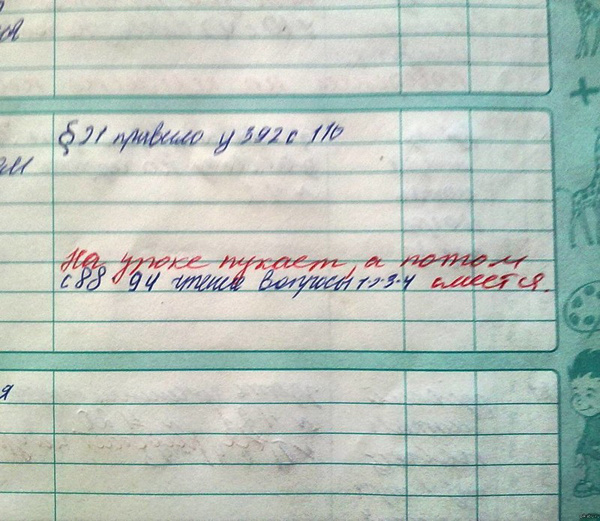 ся
§ 21 правило у 392 с 116
На уроке пукает, а потом
с 88 94 чтение вопросы 1-2-3-4 смеется.
я